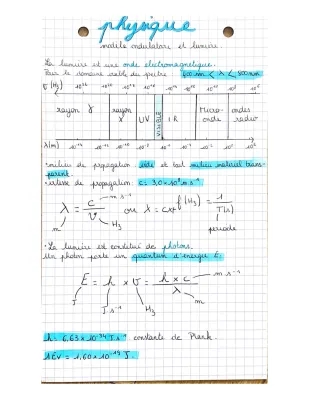 physique
modèle ondulatoire et lumière
La lumière est une onde électromagnétique.
Pour le domaine visible du spectre 400 nm < λ < 800 nm
ν (Hz)
rayon γ
rayon X
UV
VISIBLE
IR
Micro-onde
ondes radio
λ(m)
milieu de propagation: vide et tout milieu matériel trans-
parent.
vitesse de propagation: c = 3,0×10⁸ m.s⁻¹
λ = c / ν ou λ = c×T f(Hz) = 1 / T(s)
m.s⁻¹
m Hz période
La lumière est constituée de photons.
Un photon porte un quantum d'énergie E.
E = h × ν = h × c / λ
m.s⁻¹
J J.s⁻¹ Hz m
h: 6,63×10⁻³⁴ J.s⁻¹ constante de Plank.
1 eV = 1,60×10⁻¹⁹ J.